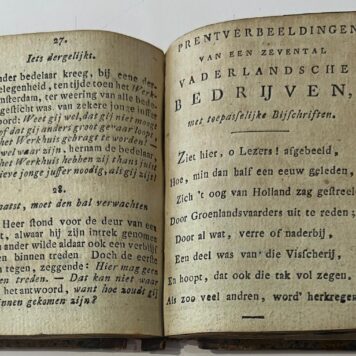 27.
Iets dergelijkt.
nder bedelaar kreeg, bij eene der-
elegenheid, ten tijde toen het Werk-
msterdam, ter weering van alle bede-
gericht was van zekere jonge juffer
woord: Weet gij wel, dat gij niet moogt
of dat gij anders groot gevaar loopt,
het Werkhuis gebragt te worden? —
wel waar zijn, hernam de bedelaar,
het Werkhuis hebben zij thans juist
ieve jonge juffer noodig, als gij zijt!
28.
aatst, moet den bal verwachten
Heer stond voor de deur van een
t, alwaar hij zijn intrek genomen
een ander wilde aldaar ook een verblijf
en binnen treden. Doch de eerste
tegen, zeggende: Hier mag geen
en treden. — Dat kan niet waar
het antwoord, want hoe zoudt gij
innen gekomen zijn?
PRENTVERBEELDINGEN
VAN EEN ZEVENTAL
VADERLANDSCHE
BEDRIJVEN,
met toepasselijke Bijschriften.
Ziet hier, o Lezers! afgebeeld,
Hoe, min dan half een eeuw geleden,
Zich 't oog van Holland zag gestreeld
Door Groenlandsvaarders uit te reden;
Door al wat, verre of naderbij,
Een deel was van die Visscherij,
En hoopt, dat ook die tak vol zegen,
Als zoo veel andren, word' herkregen